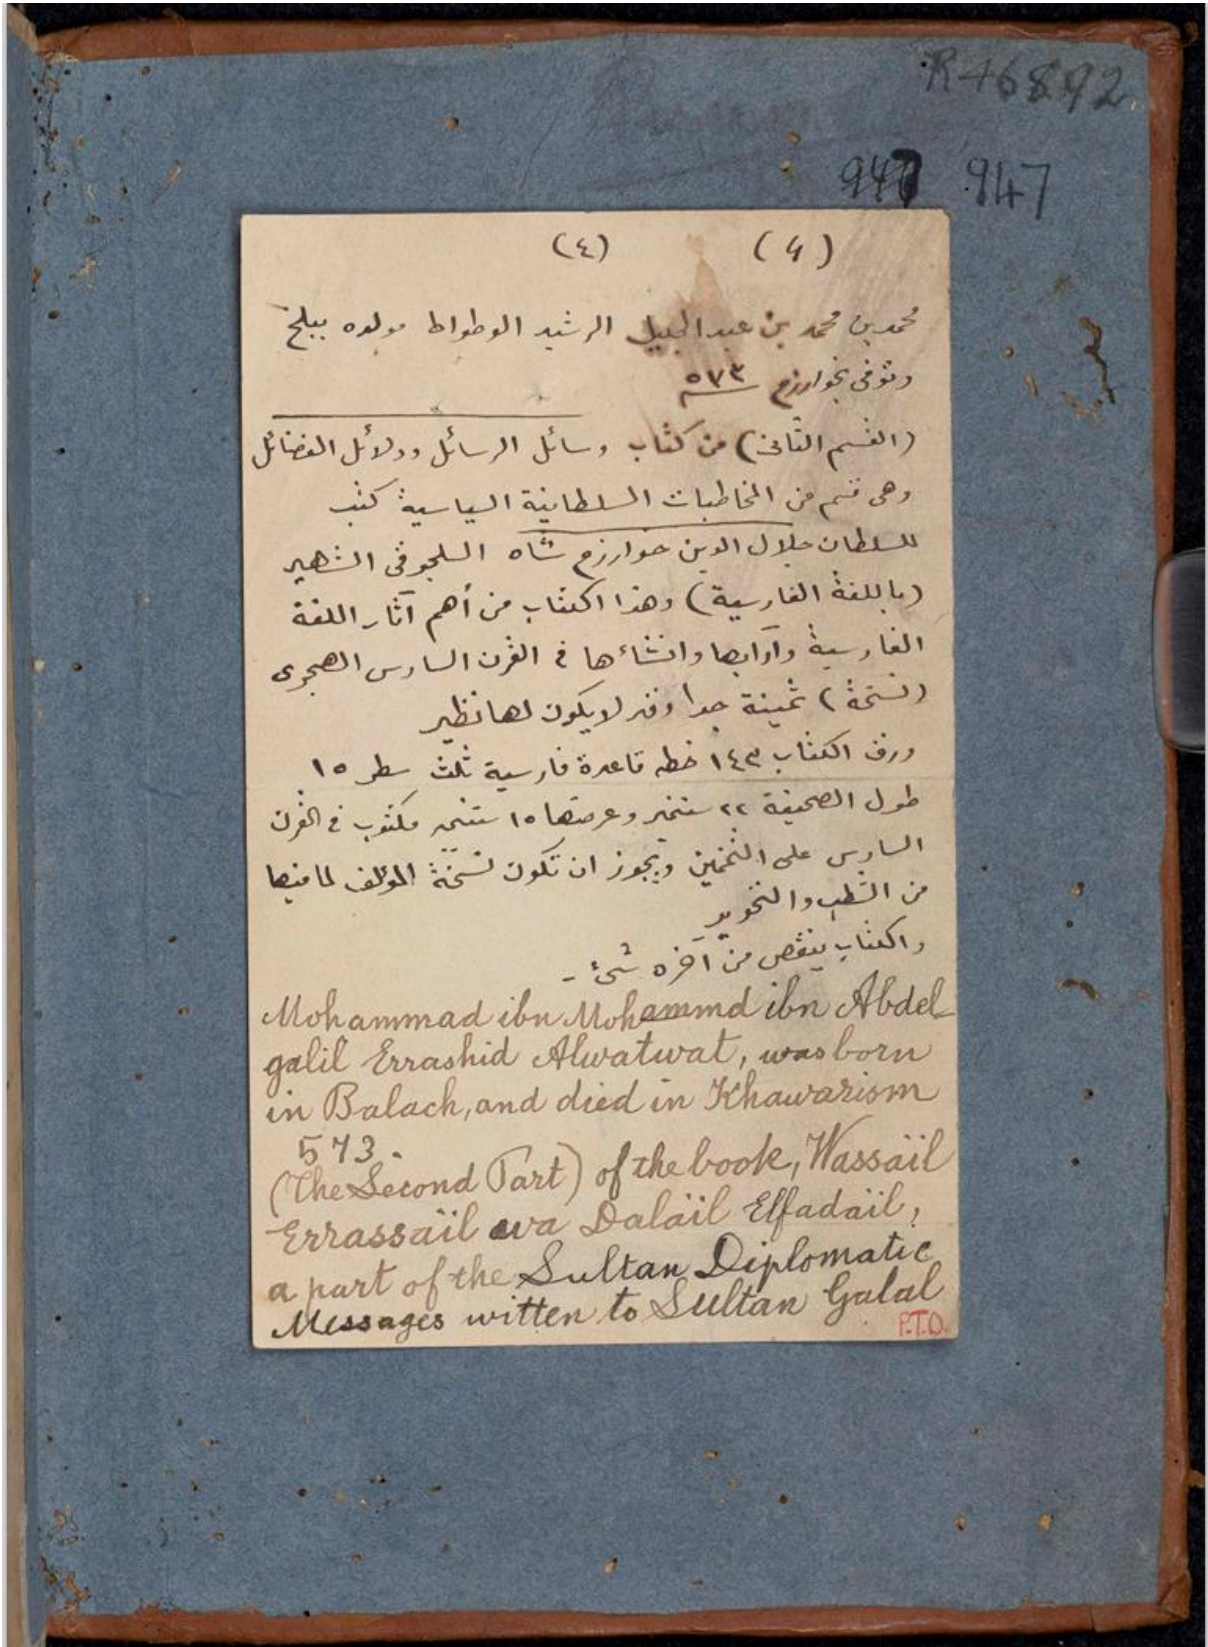 R46892
947 947
(٤) (4)
محمد بن محمد بن عبد الجليل الرشيد الوطواط مولده ببلخ
وتوفى بخوارزم ٥٧٣
(القسم الثانى) من كتاب وسائل الرسائل ودلائل الفضائل
وهى قسم من المخاطبات السلطانية السياسية كتب
للسلطان جلال الدين خوارزم شاه السلجوقى الشهير
(باللغة الفارسية) وهذا الكتاب من أهم آثار اللغة
الفارسية وآدابها وانشاءها فى القرن السادس الهجرى
(نسخة) ثمينة جدا وقد لا يكون لها نظير
ورق الكتاب ١٤٣ خطه قاعدة فارسية ثلث سطر ١٥
طول الصحيفة ٢٢ سنتمتر وعرضها ١٥ سنتمتر مكتوب فى القرن
السادس على التخمين ويجوز ان تكون نسخة المؤلف لما فيها
من الشطب والتحوير
والكتاب ينقص من آخره شئ -
Mohammad ibn Mohammd ibn Abdel-
galil Errashid Alwatwat, was born
in Balach, and died in Khawarism
573.
(The Second Part) of the book, Wassaïl
Errassaïl wa Dalaïl Elfadaïl,
a part of the Sultan Diplomatic
Messages witten to Sultan Galal
P.T.O.